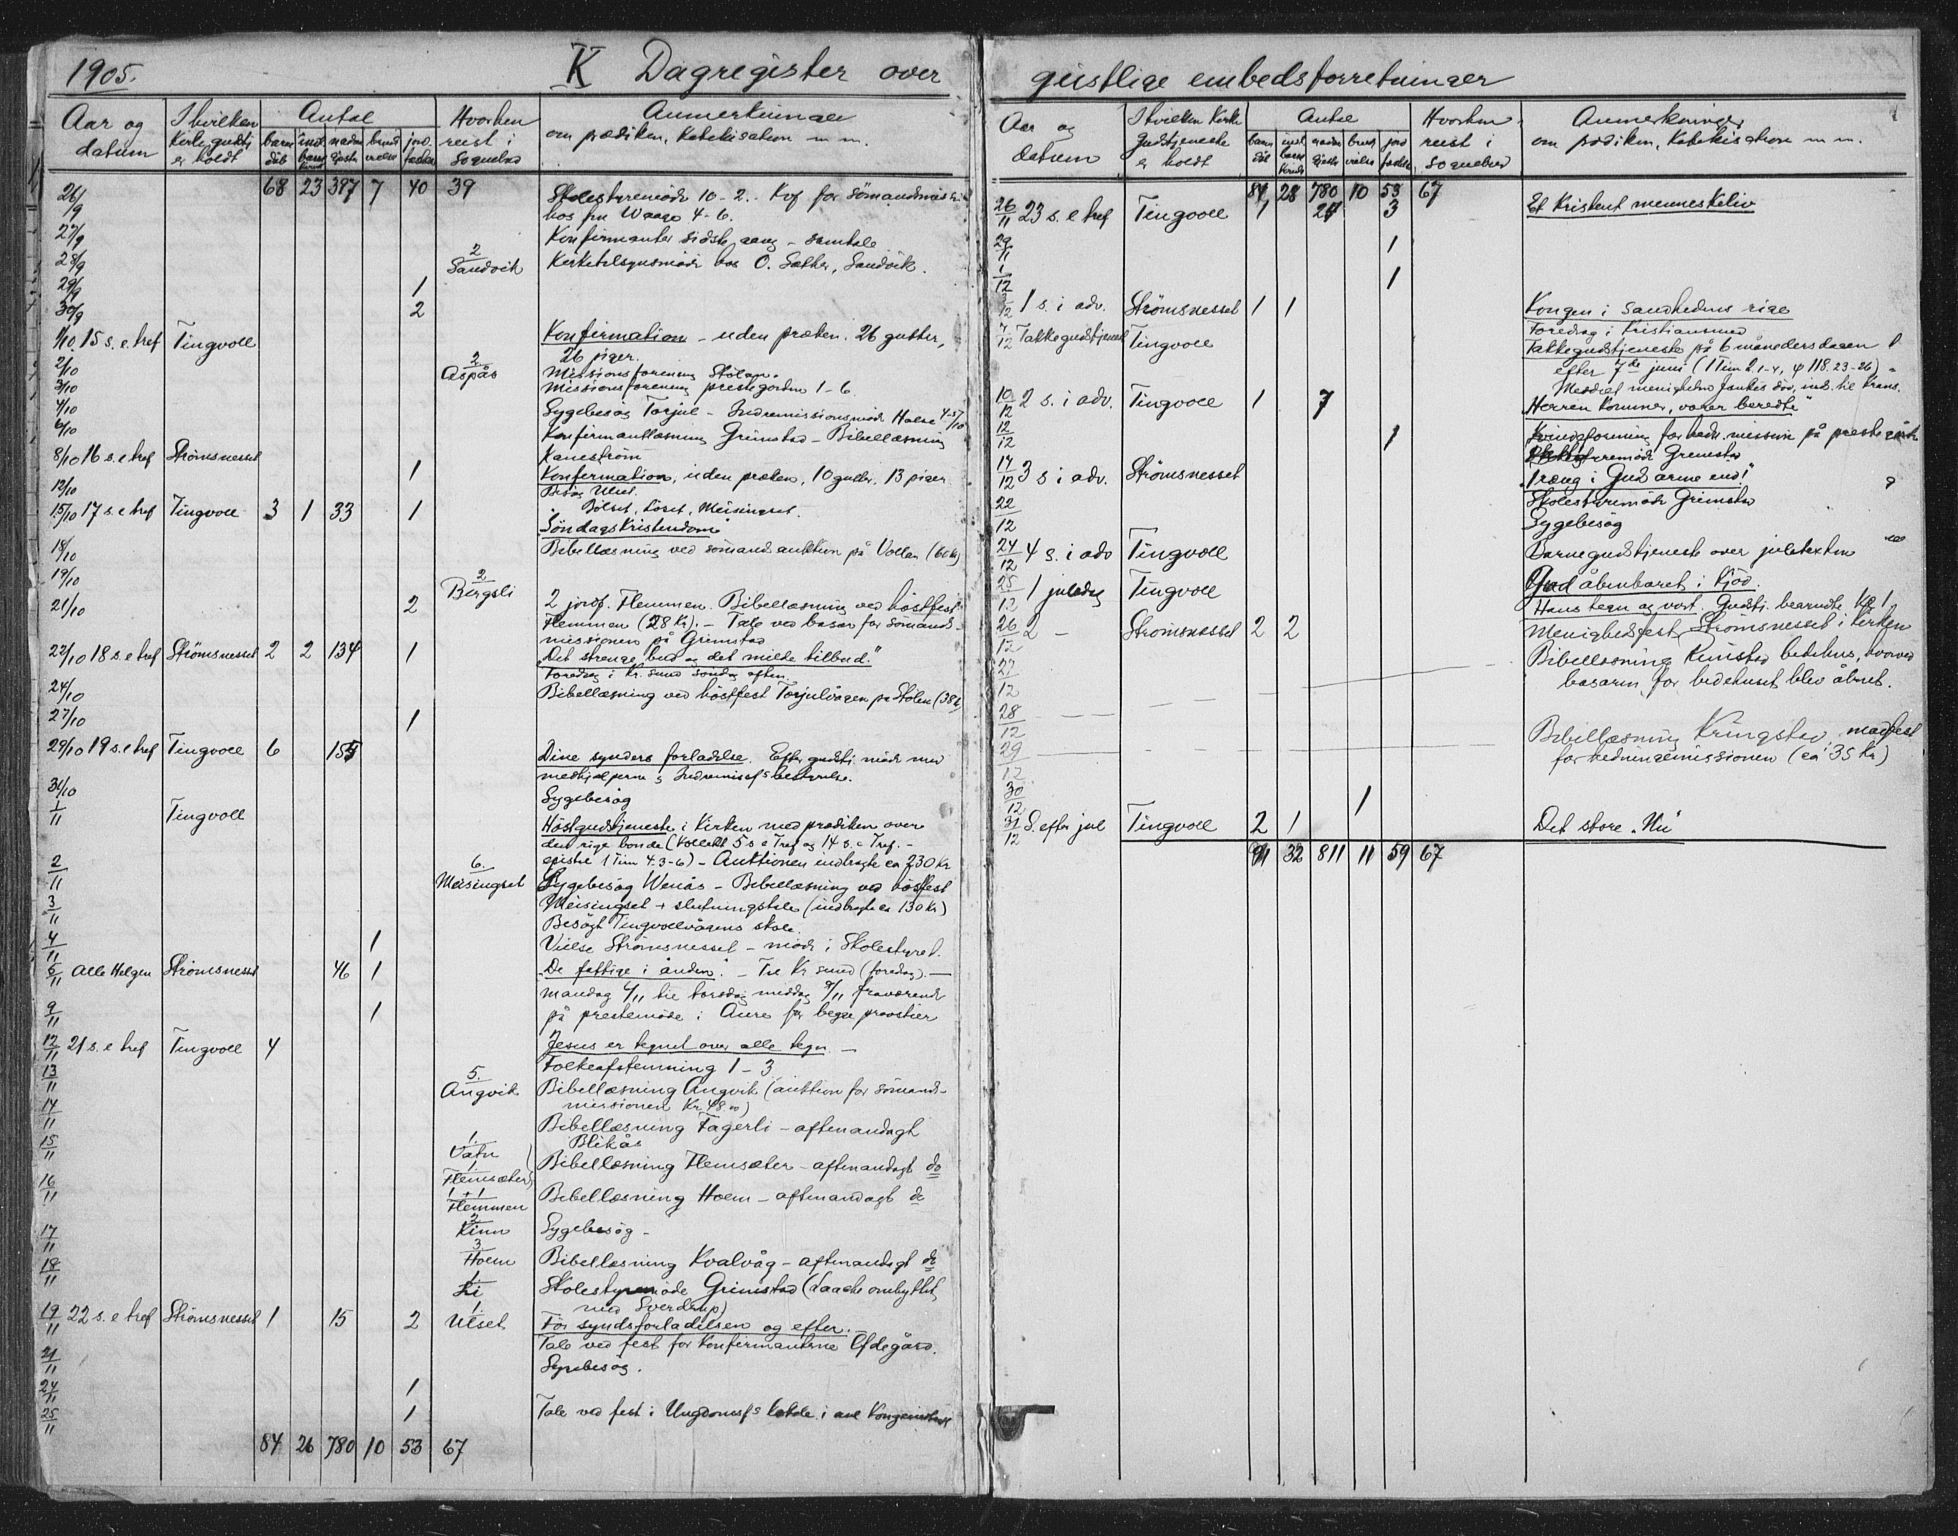 1905.
K Dagregister over
Aar og datum
I hvilken Kirke gudstj. er holdt
Antal
barnedåb
nadvergjester
Hvorhen reist i Sognebud
Anmerkninger om prædiken, katekisation m. m.
68 23 387 7 40 39
26/9 Skolestyremøde 10-2.. for Sömandsmis
hos fru Waage 4-6.
27/9 Konfirmanter sidste gang - samtale
28/9 2 Sandvik Kirketilsynsmøde hos O. Sæther, Sandvik.
29/9 1
30/9 2
1/10 15 s. e tref Tingvoll Konfirmation - uden præken. 26 gutter,
26 piger.
2/10 2 Aspås Missionsforening
3/10 Missionsforening prestegården 1-6.
4/10 Sygebesøg Torjul - Indremissionsmøde Halse 4-5/10
6/10 Konfirmantlæsning Grimstad - Bibellæsning
Kanestrøm
8/10 16 s. e tref Strømsnesset 1 Konfirmation, uden præken, 10 gutter, 13 piger
12/10
15/10 17 s. e tref Tingvoll 3 1 33 1 Meisingset.
"Søndagskristendom"
18/10 Bibellæsning ved sömandsauktion på Vollan (60 kr)
19/10 2 Bergsli
21/10 2 2 jordf. Flemmen. Bibellæsning ved höstfest
Flemmen (28 Kr). - Tale ved basar for sömands-
missionen på Grimstad
22/10 18 s. e tref Strømsnesset 2 2 134 1 "Det strenge bud og det milde tilbud."
Foredrag i Kr. sund söndag aften.
24/10 Bibellæsning ved höstfest Torjulvågen på Skolen (38 k)
27/10 1
29/10 19 s. e tref Tingvoll 6 155 Dine synders forladelse. Efter gudstj. møde med
medhjelperne Indremissfs bestyrelse.
31/10 Sygebesøg
1/11 Tingvoll Höstgudstjeneste i Kirken med prædiken over
den rige bonde (kollekt 5 s e Tref og 14 s. e Tref. -
epistel 1 Tim 4.3-6) - Auktionen indbragte ca 230 Kr.
2/11 6. Meisingset Sygebesøg Wenås - Bibellæsning ved höstfest
Meisingset + slutningstale (indbragte ca 130 Kr)
3/11 Besøgt Tingvollvågens skole.
4/11 1 Vielse Strømsnesset - møde i Skolestyret.
5/11 Alle Helgen Strømsnesset 46 1 "De fattige i ånden." - Til Kr sund (foredrag). -
mandag 6/11 til torsdag middag 9/11 fraværende
9/11 1 på prestemøde i Aure for begge provstier
12/11 21 s. e tref Tingvoll 4 Jesus er tegnet over alle tegn. -
13/11 Folkeafstemning 1-3
5. Angvik Bibellæsning Angvik (auktion for sömands-
14/11 missionen Kr. 48 00)
Bibellæsning Fagerli - aftenandagt
15/11 1 Vatn Blikås
1 Flemsæter Bibellæsning Flemsæter - aftenandagt do
16/11 1+1 Flemmen Bibellæsning Hoem - aftenandagt do
17/11 2 Kinn Sygebesøg -
18/11 3 Hoem Bibellæsning Kvalvåg - aftenandagt do
1 Li Skolestyremøde Grimstad (Laache ombyttet
med Sverdrup)
19/11 22 s. e tref Strømsnesset 1 15 2 1. Ulset Før syndsforladelsen og efter.
21/11 Tale ved fest for konfirmanterne Öfdegård.
Sygebesøg.
24/11 1
25/11 1 Tale ved fest i Ungdomsfs lokale i anl
84 26 780 10 53 67
geistlige embedsforretninger
Aar og datum
I hvilken Kirke Gudstjeneste er holdt
Antal
barnedåb
Hvorhen reist i Sognebud
Anmerkninger om prædiken, katekisation m. m.
84 28 780 10 53 67
26/11 23 s. e tref Tingvoll 1 24 3 Et kristent menneskeliv
29/11 1
1/12 1
3/12 1 s. i adv. Strømsnesset 1 1 Kongen i sandhedens rige
Foredrag i Kristiansund
7/12 Takkegudstjeneste Tingvoll Takkegudstjeneste på 6 månedersdagen
efter 7de juni (1 Tim 2.1-4, ψ 118.23-26)
10/12 2 s. i adv. Tingvoll 1 7 "Herren kommer, vorer beredte"
12/12 1 Kvindeforening for hedn. missin på prestegården
Skolestyremøde Grimstad
17/12 3 s i adv. Strømsnesset "Træng i Gud arme ind!"
22/12 Skolestyremøde Grimstad
Sygebesøg
24/12 4 s. i adv Tingvoll Barnegudstjeneste over juleteksten
25/12 1 juledag Tingvoll Gud åbenbaret i kjød.
26/12 2 - Strømsnesset 2 2 Hans tegn og vort. Gudstj. begyndte Kl 1
Menighedsfest Strømsnesset i kirken
27/12 Bibellæsning Kimstad bedehus, hvorved
basaren for bedehuset blev åbnet.
28/12
29/12 Bibellæsning Kringstad
for hedningemissionen (ca 35 Kr)
30/12 1
31/12 S. efter jul Tingvoll 2 1 Det store "Nu"
91 32 811 11 59 67